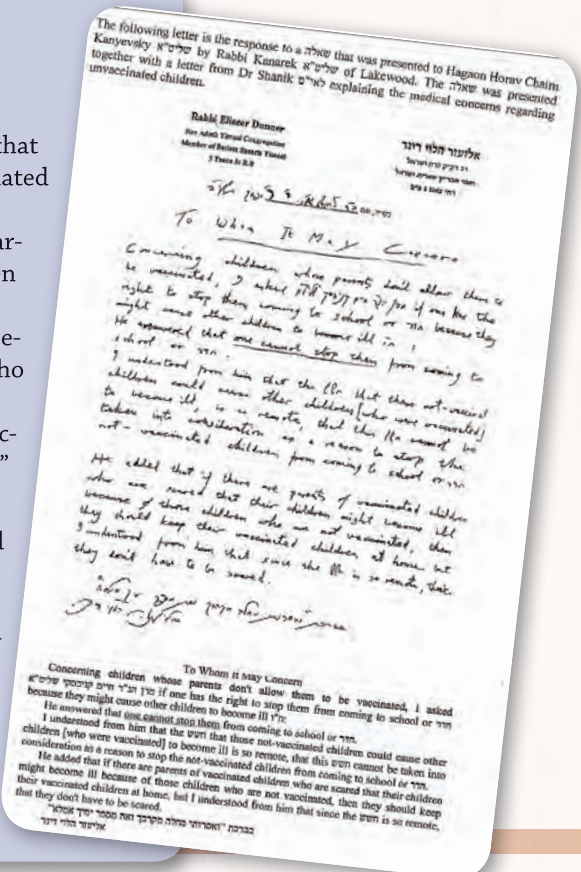 that
ated
ar-
en
e-
ho
c-
”
d
The following letter is the response to a שאלה that was presented to Hagaon Horav Chaim
Kanyevsky שליט"א by Rabbi Kanarek שליט"א of Lakewood. The שאלה was presented
together with a letter from Dr Shanik לאי"ט explaining the medical concerns regarding
unvaccinated children.
Rabbi Eliezer Dunner
Rav Adath Yisroel Congregation
Member of Badatz Shearis Yisroel
אליעזר הלוי דונר
To Whom It May Concern
Concerning children whose parents don't allow them to
be vaccinated, I asked if one has the
right to stop them coming to school or חדר because they
might cause other children to become ill
He answered that one cannot stop them from coming to
school or חדר.
I understood from him that the חשש that those not-vaccinated
children could cause other children [who were vaccinated]
to become ill, is so remote, that this חשש cannot be
taken into consideration as a reason to stop the
not-vaccinated children from coming to school or חדר.
He added that if there are parents of vaccinated children
who are scared that their children might become ill
because of those children who are not vaccinated, then
they should keep their vaccinated children at home, but
I understood from him that since the חשש is so remote, that
they don't have to be scared.
To Whom it May Concern
Concerning children whose parents don't allow them to be vaccinated, I asked
מרן הגר"ח קניבסקי שליט"א if one has the right to stop them from coming to school or חדר
because they might cause other children to become ill
He answered that one cannot stop them from coming to school or חדר.
I understood from him that the חשש that those not-vaccinated children could cause other
children [who were vaccinated] to become ill is so remote, that this חשש cannot be taken into
consideration as a reason to stop the not-vaccinated children from coming to school or חדר.
He added that if there are parents of vaccinated children who are scared that their children
might become ill because of those children who are not vaccinated, then they should keep
their vaccinated children at home, but I understood from him that since the חשש is so remote,
that they don't have to be scared.
בברכת "והסרותי מחלה מקרבך ואת מספר ימיך אמלא"
אליעזר הלוי דונר